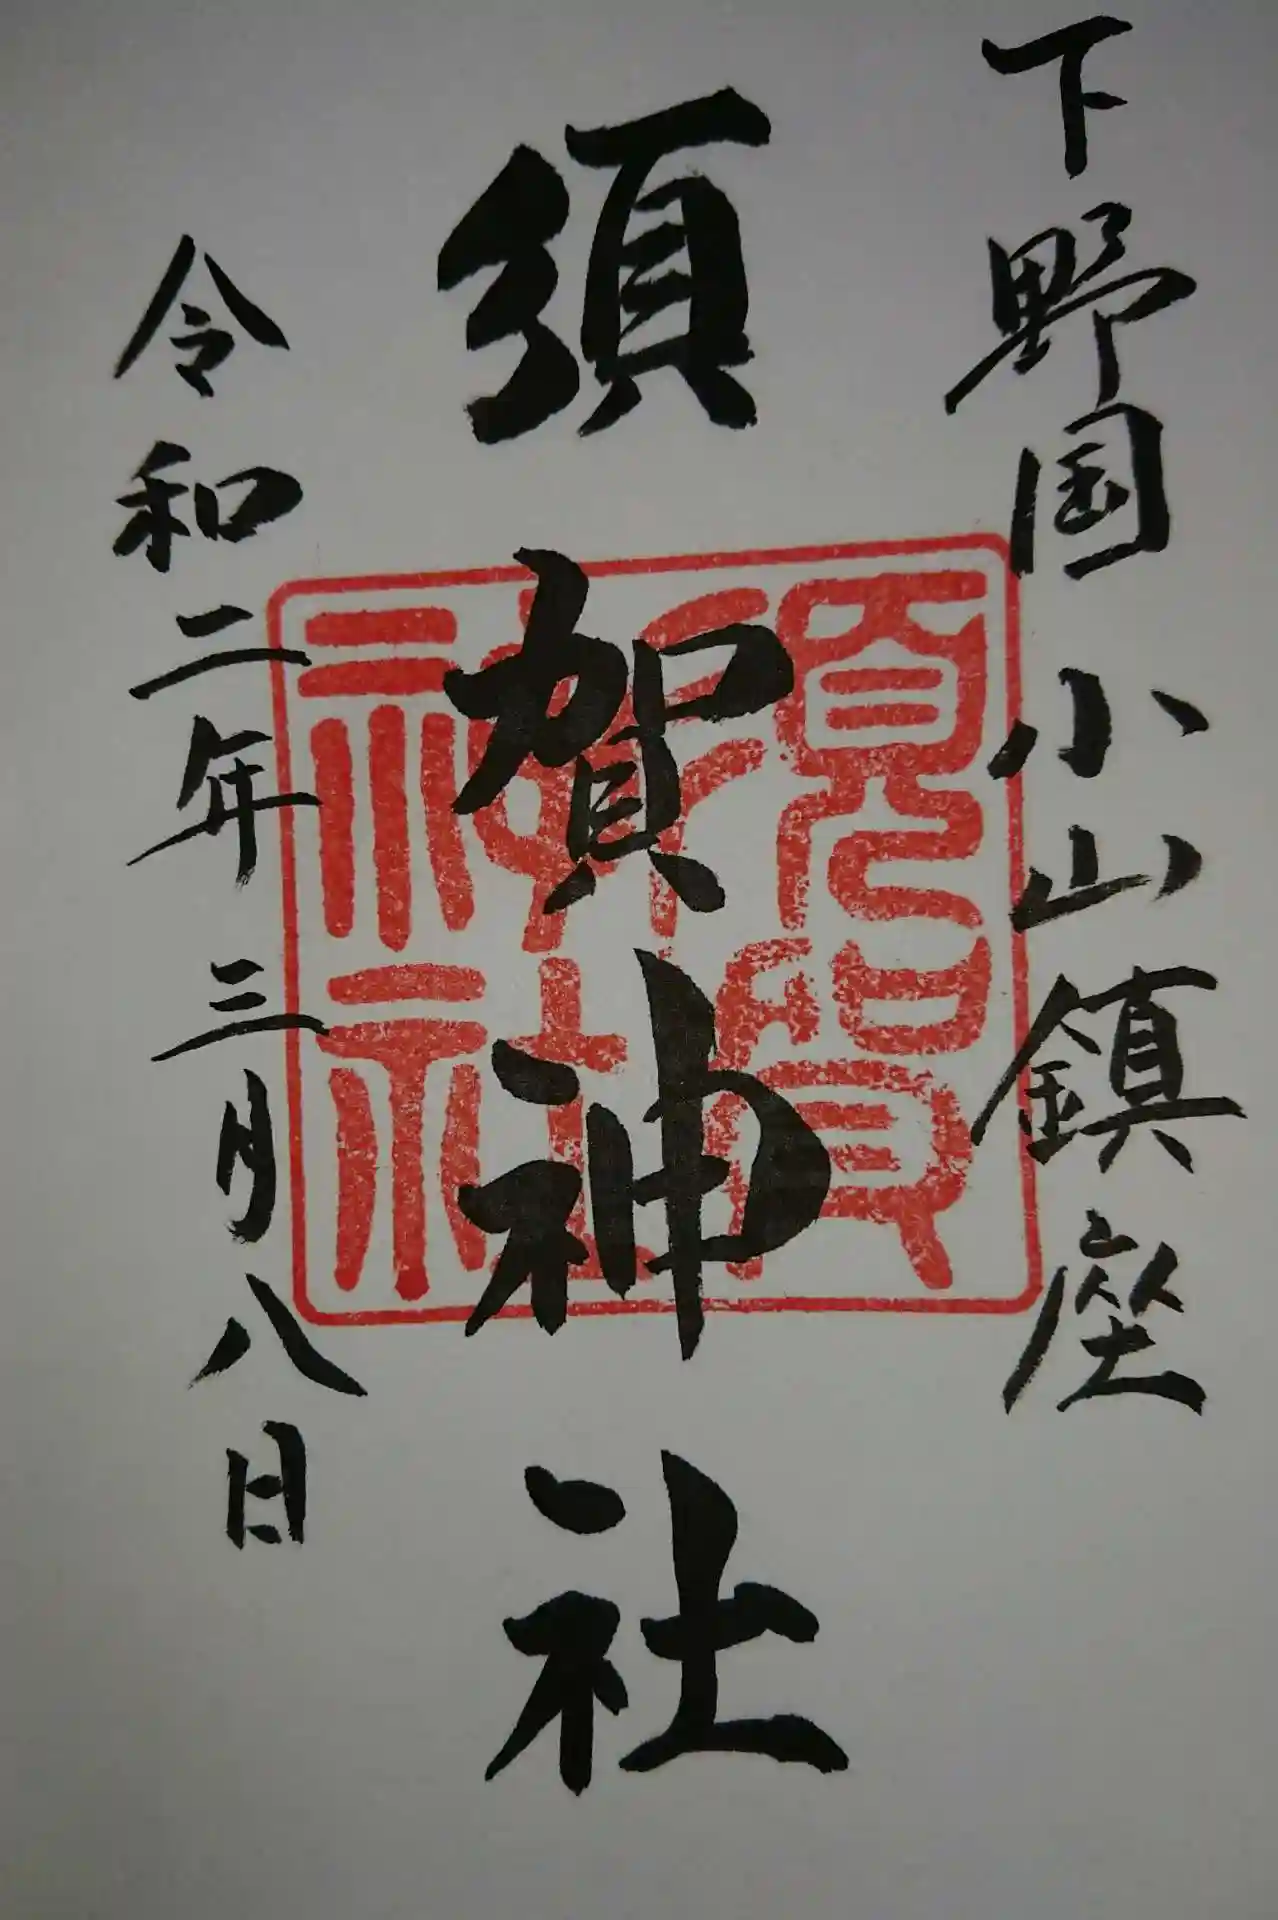 下野国小山鎮座
須賀神社
須賀神社
令和二年三月八日